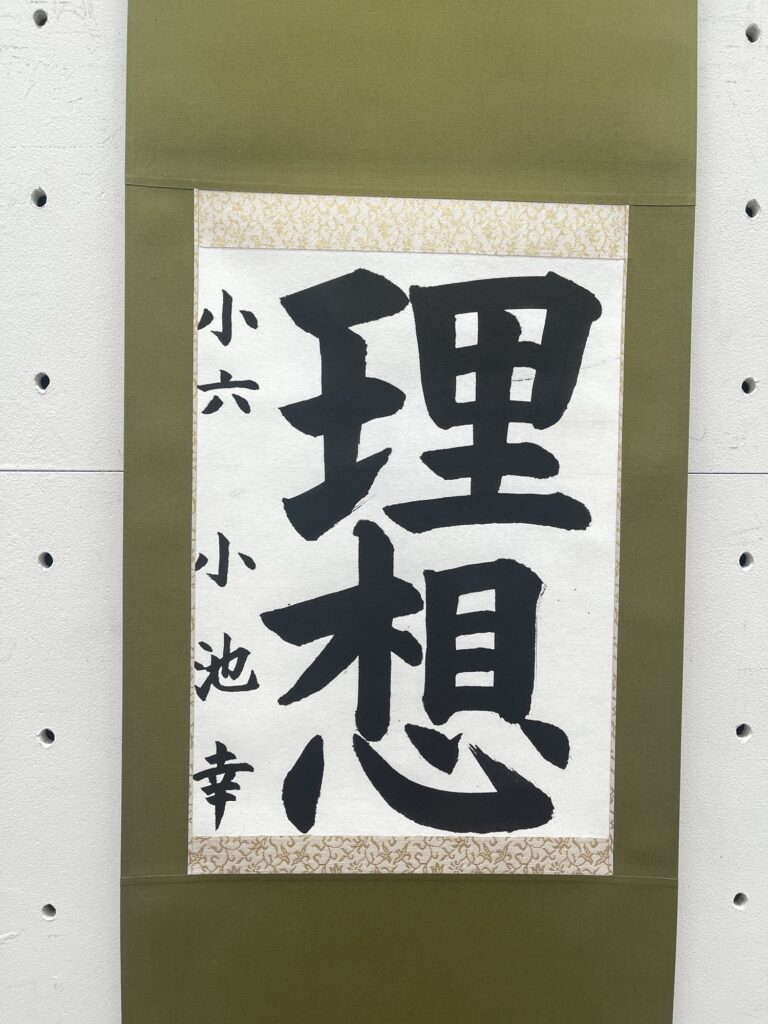 理想
小六 小池幸